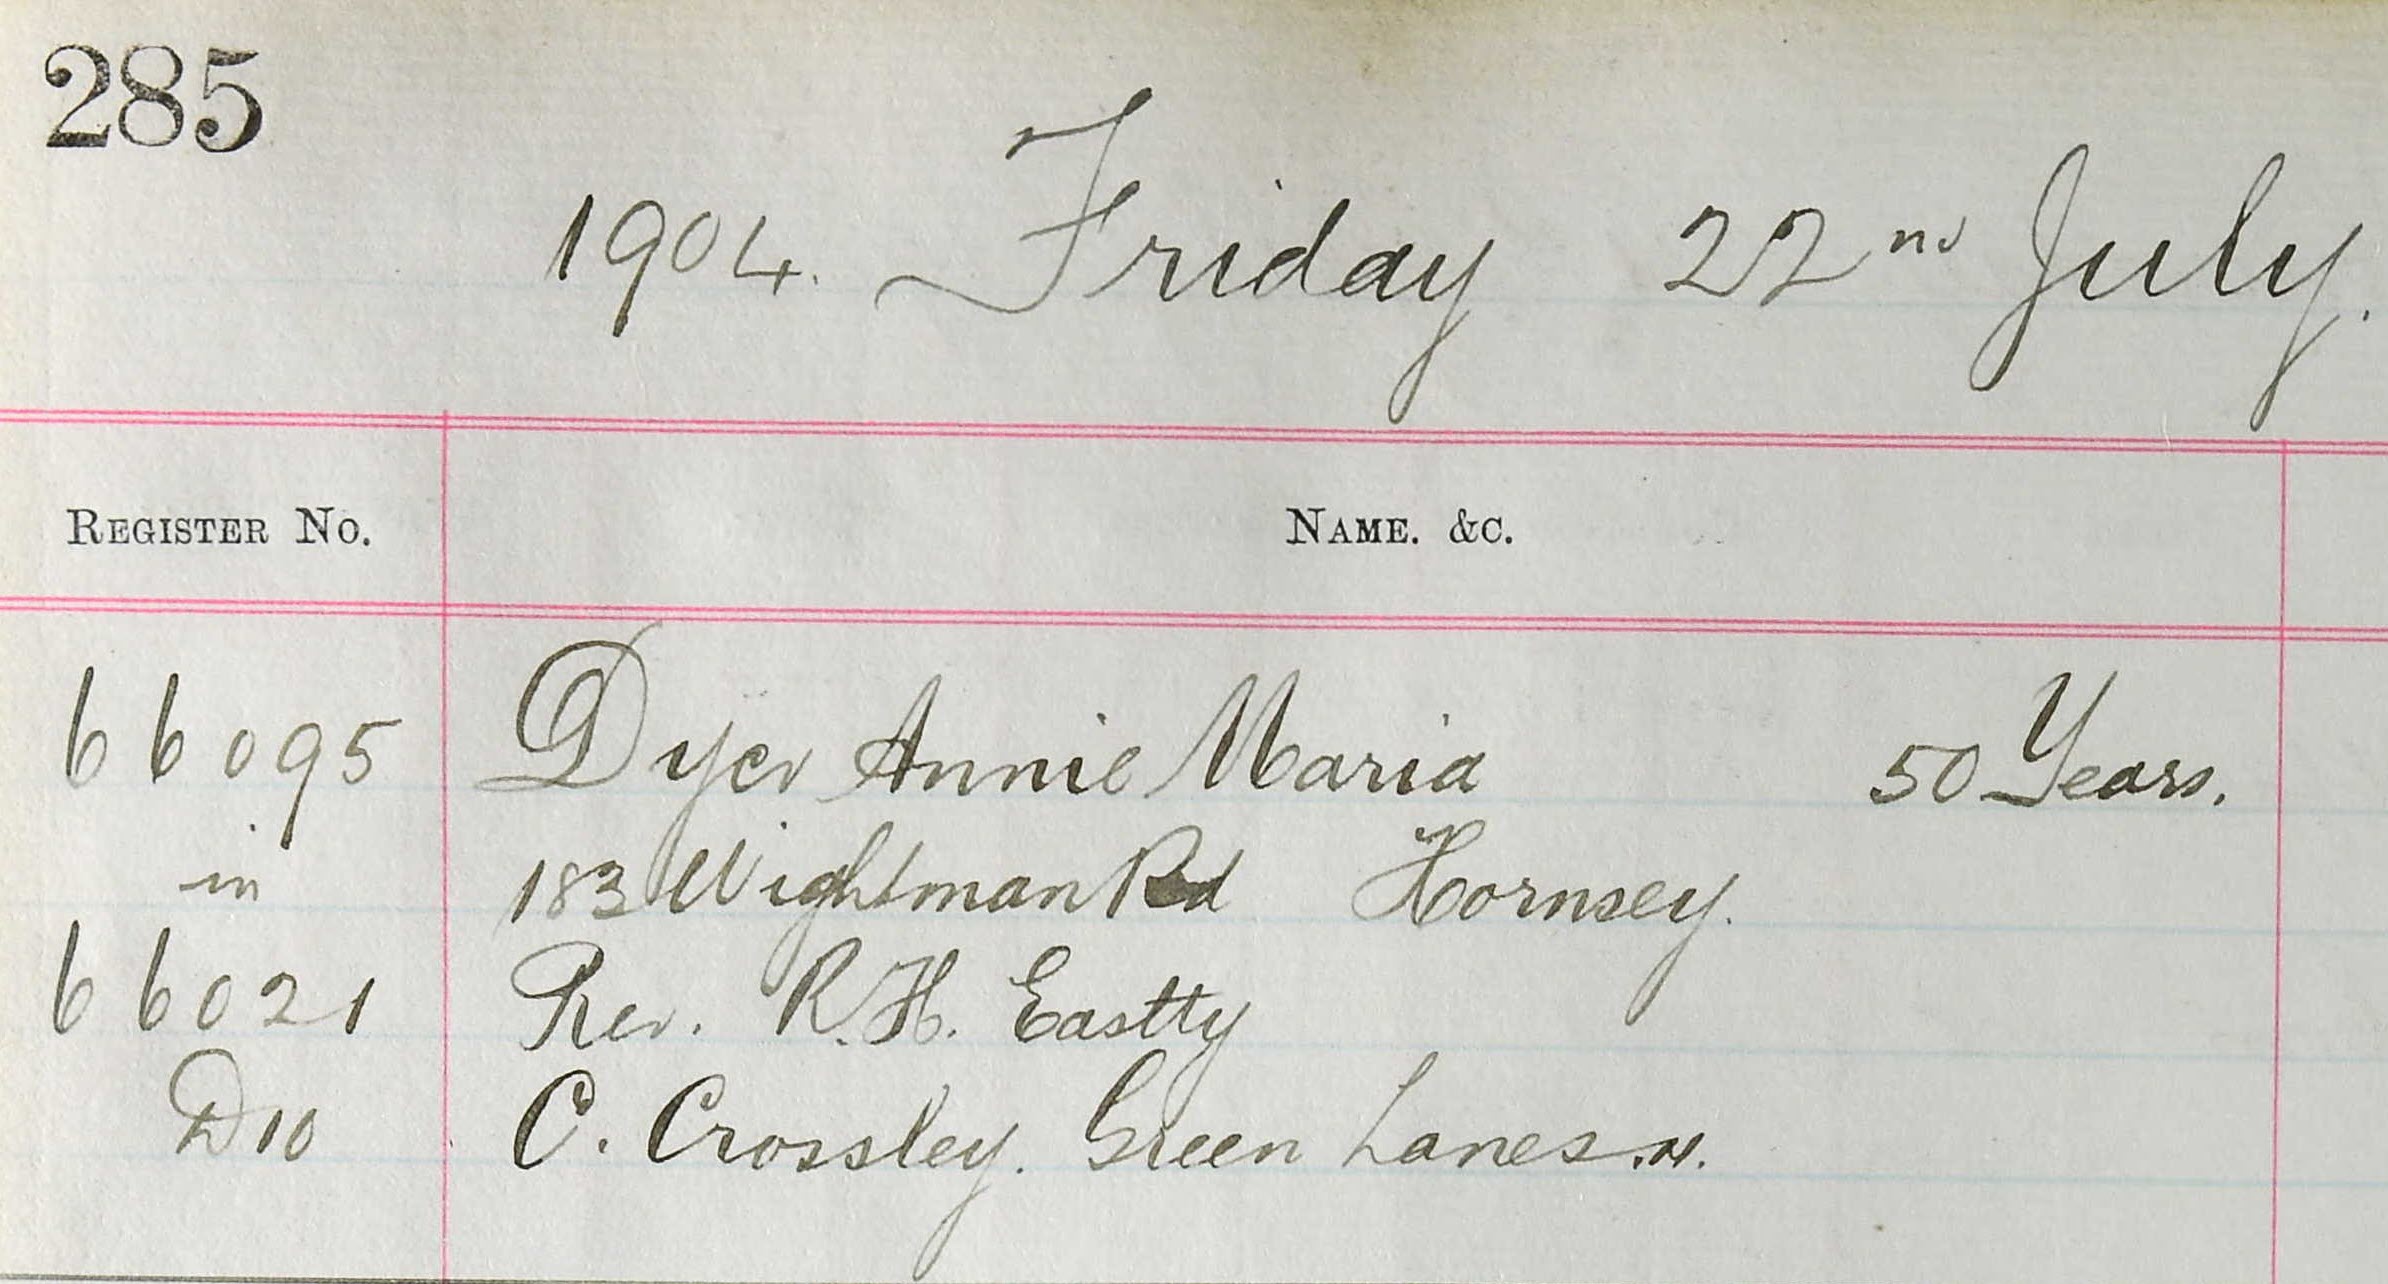 285
1904. Friday 22nd July.
REGISTER NO. NAME. &C.
66095 Dyer Annie Maria 50 Years.
in 183 Wightman Rd Hornsey.
66021 Rev. R.H. Eastty
D10 C. Crossley. Green Lanes. N.